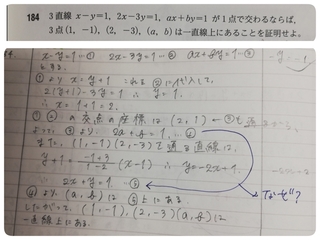 184 3直線 x-y=1, 2x-3y=1, ax+by=1 が1点で交わるならば,
3点(1, -1), (2, -3), (a, b) は一直線上にあることを証明せよ。
x-y=1 ① 2x-3y=1 ② ax+by=1 ③
とする.
①より x=y+1 これを②に代入して,
2(y+1)-3y=1 ∴ y=1.
∴ x=1+1=2.
①②の交点の座標は(2,1) ③も通る
よって ③より 2a+b=1. ④
また, (1,-1) (2,-3)を通る直線は,
y+1=-1+3/1-2(x-1) ∴ y=-2x+1.
∴ 2x+y=1 ⑤
④より (a,b)は⑤上にある
なぜ?
したがって (1,-1), (2,-3)(a,b)は
一直線上にある.